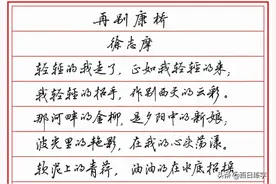 再别康桥
徐志摩
轻轻的我走了，正如我轻轻的来；
我轻轻的招手，作别西天的云彩。
那河畔的金柳，是夕阳中的新娘；
波光里的艳影，在我的心头荡漾。
软泥上的青荇，油油的在水底招摇
头条 @百日练字